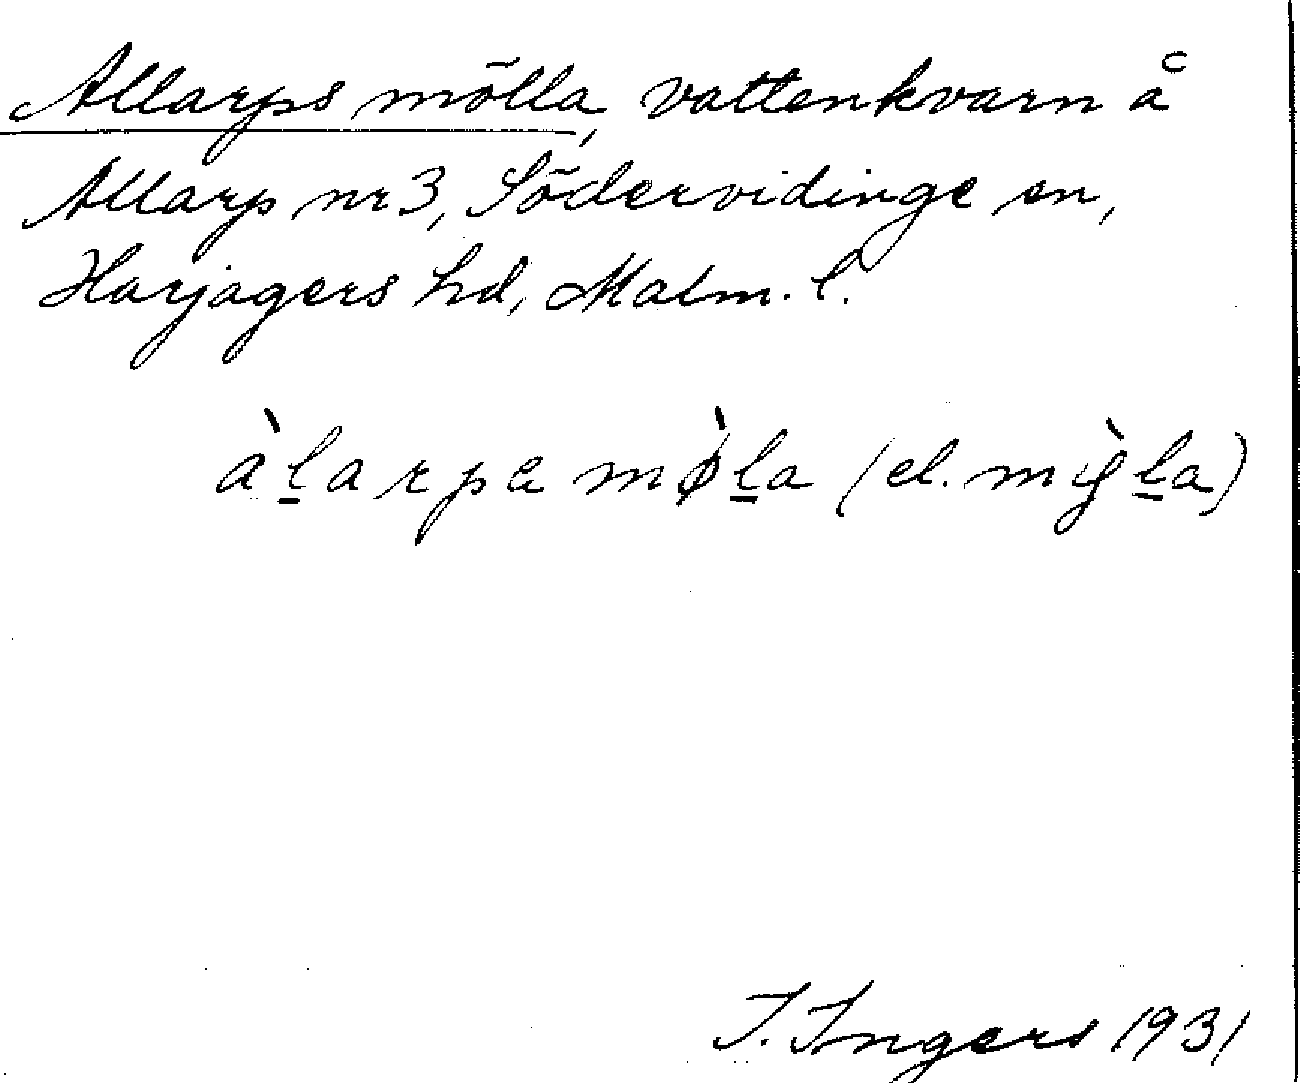 Allarps mölla, vattenkvarn å
Allarp nr 3, Södervidinge sn,
Harjagers hd, Malm. l.
àl̲arpa mø̀l̲a (el. mỳl̲a)
I. Ingers 1931